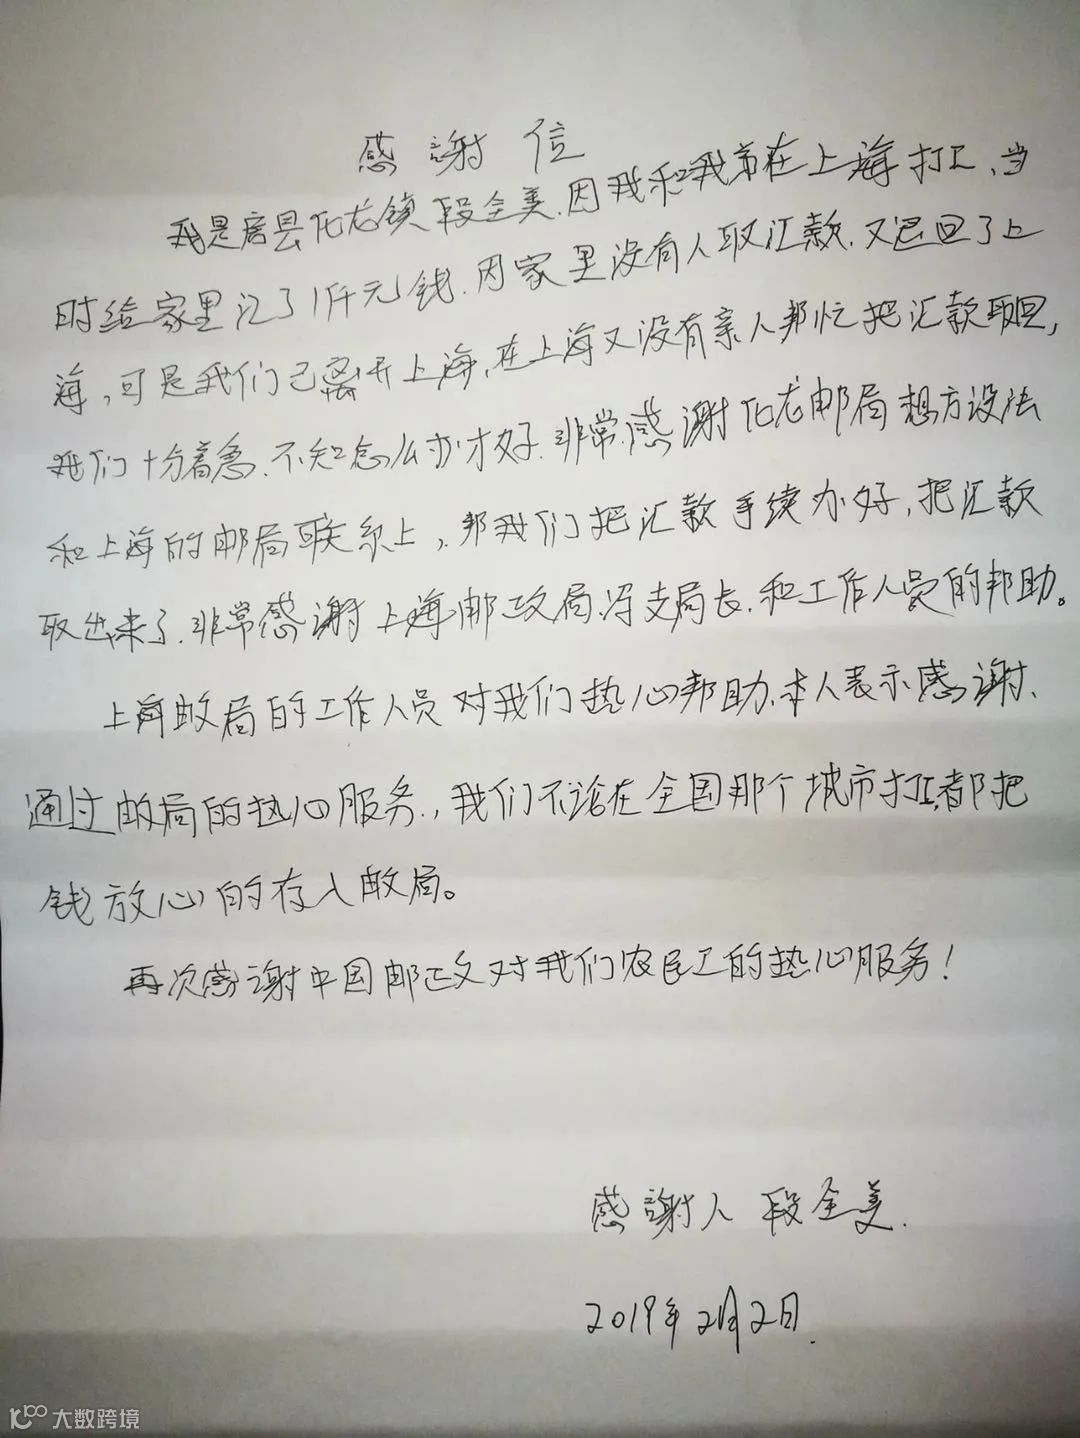 感謝信
我是房县化龙镇段全美.因我和我弟在上海打工、当
时给家里汇了1仟元钱.因家里没有人取汇款.又退回了上
海,可是我们已离开上海,在上海又没有亲人邦忙把汇款取回,
我们十分着急.不知怎么办才好.非常感谢化龙邮局想方设法
和上海的邮局联系上,邦我们把汇款手续办好,把汇款
取出来了.非常感谢上海邮政局冯支局长.和工作人员的邦助。
上海邮局的工作人员对我们热心邦助.本人表示感谢、
通过邮局的热心服务,我们不论在全国那个城市打工,都把
钱放心的存入邮局。
再次感谢中国邮政对我们农民工的热心服务!
感謝人 段全美.
2019年2月2日.
大数跨境